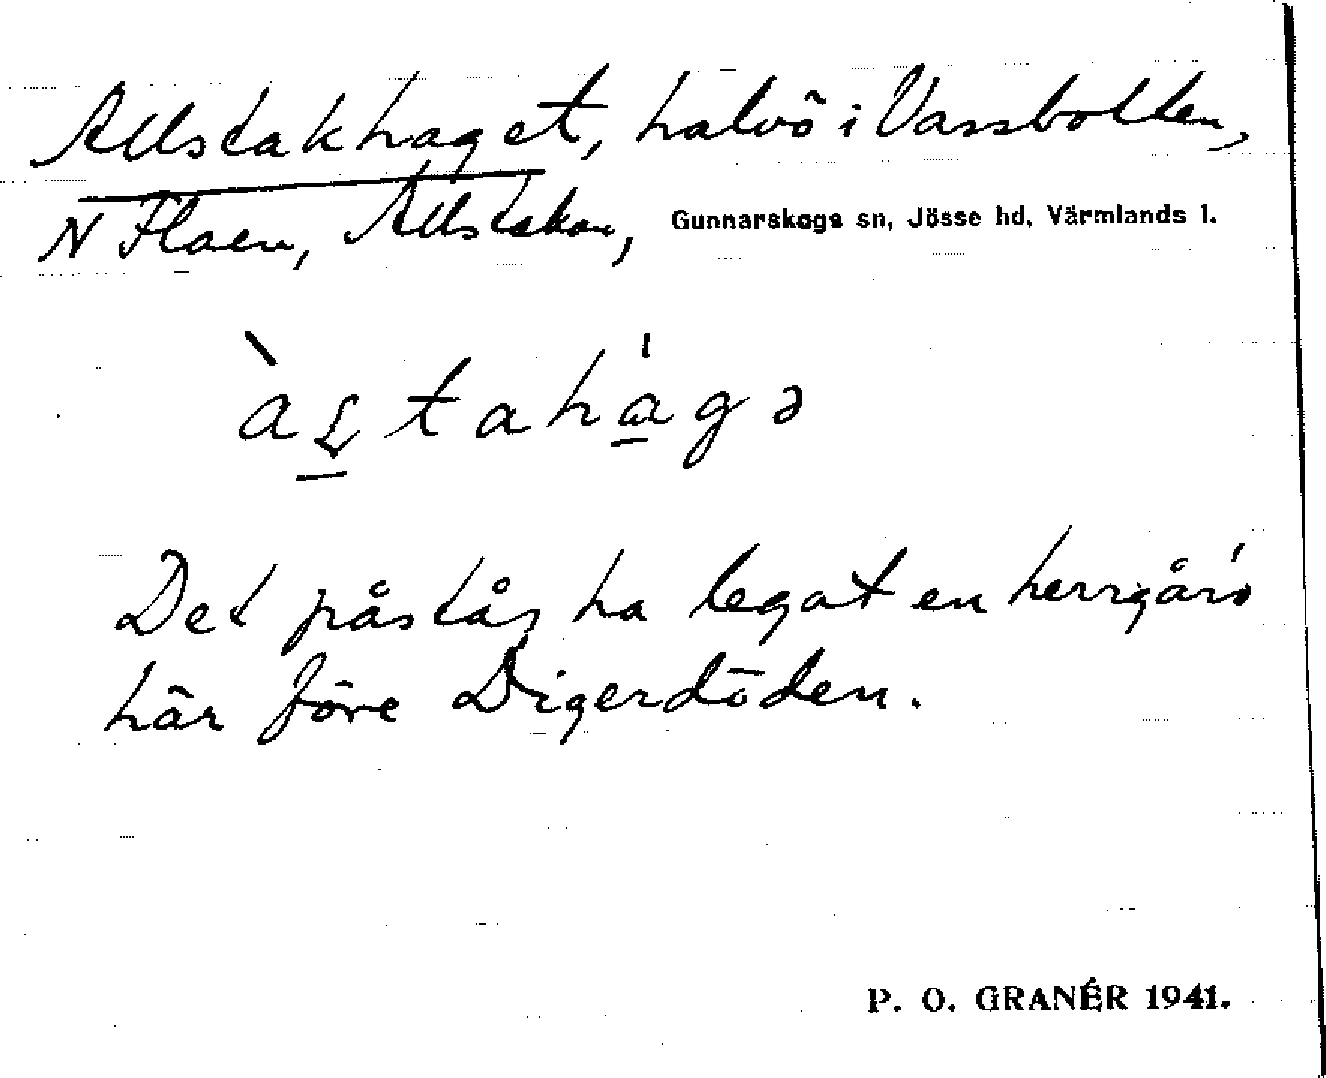 Allstakhaget, halvö i Vassbotten,
N Floen, Allstakan, Gunnarskogs sn, Jösse hd, Värmlands l.
Det påstås ha legat en herrgård
här före Digerdöden.
P. O. GRANÉR 1941.